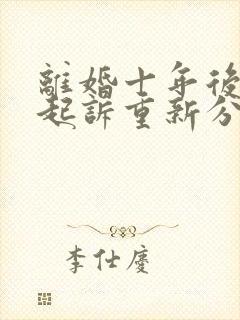 離婚十年後
起訴重新分
李仕慶